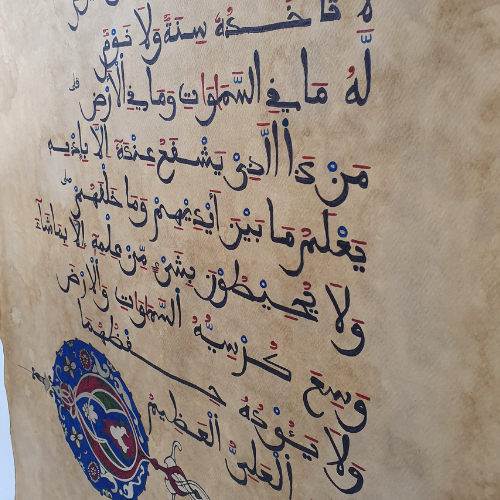 لَا تَاخُذُهُ سِنَةٌ وَلَا نَوْمٌ
لَّهُ مَا فِي السَّمَٰوَٰتِ وَمَا فِي الْأَرْضِ
مَن ذَا الَّذِي يَشْفَعُ عِندَهُ إِلَّا بِإِذْنِهِ
يَعْلَمُ مَا بَيْنَ أَيْدِيهِمْ وَمَا خَلْفَهُمْ
وَلَا يُحِيطُونَ بِشَيْءٍ مِّنْ عِلْمِهِ إِلَّا بِمَا شَاءَ
وَسِعَ كُرْسِيُّهُ السَّمَٰوَٰتِ وَالْأَرْضَ
وَلَا يَـُٔودُهُ حِفْظُهُمَا
الْعَلِيُّ الْعَظِيمُ